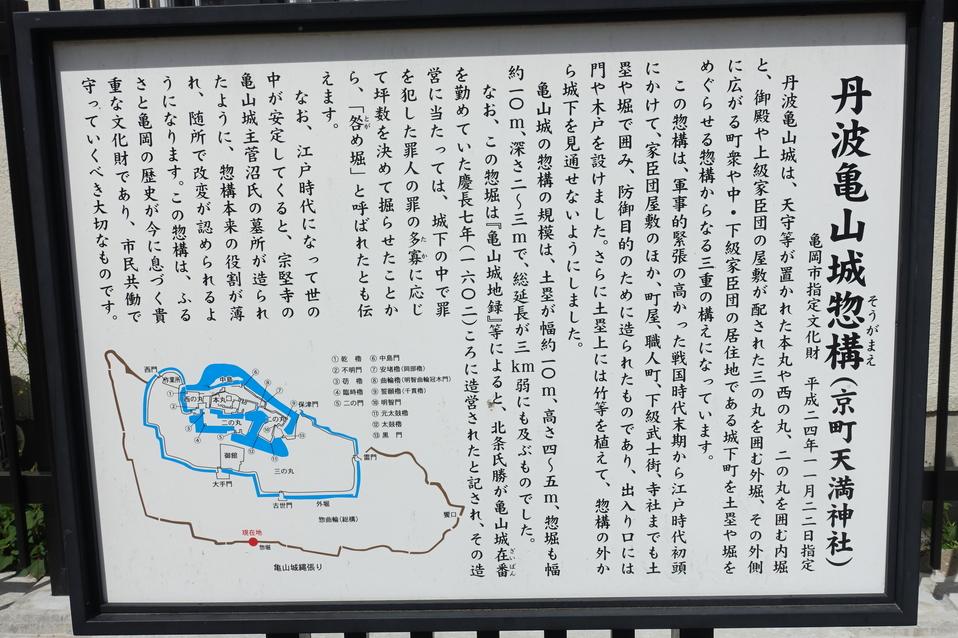 丹波亀山城惣構（京町天満神社）
そうがまえ
亀岡市指定文化財　平成二四年一一月二二日指定
丹波亀山城は、天守等が置かれた本丸や西の丸、二の丸を囲む内堀
と、御殿や上級家臣団の屋敷が配された三の丸を囲む外堀、その外側
に広がる町衆や中・下級家臣団の居住地である城下町を土塁や堀を
めぐらせる惣構からなる三重の構えになっています。
この惣構は、軍事的緊張の高かった戦国時代末期から江戸時代初頭
にかけて、家臣団屋敷のほか、町屋、職人町、下級武士街、寺社までも土
塁や堀で囲み、防御目的のために造られたものであり、出入り口には
門や木戸を設けました。さらに土塁上には竹等を植えて、惣構の外か
ら城下を見通せないようにしました。
亀山城の惣構の規模は、土塁が幅約一〇ｍ、高さ四～五ｍ、惣堀も幅
約一〇ｍ、深さ二～三ｍで、総延長が三km弱にも及ぶものでした。
なお、この惣堀は『亀山城地録』等によると、北条氏勝が亀山城在番
ざいばん
を勤めていた慶長七年（一六〇二）ころに造営されたと記され、その造
営に当たっては、城下の中で罪
を犯した罪人の罪の多寡に応じ
たか
て坪数を決めて掘らせたことか
ら、「咎め堀」と呼ばれたとも伝
とが
えます。
なお、江戸時代になって世の
中が安定してくると、宗堅寺の
亀山城主菅沼氏の墓所が造られ
たように、惣構本来の役割が薄
れ、随所で改変が認められるよ
うになります。この惣構は、ふる
さと亀岡の歴史が今に息づく貴
重な文化財であり、市民共働で
守っていくべき大切なものです。
①乾櫓
②不明門
③荵櫓
④臨時櫓
⑤二の門
⑥中島門
⑦安堵櫓（岡部櫓）
⑧曲輪櫓（明智曲輪冠木門）
⑨誓願櫓（千貫櫓）
⑩明智門
⑪元太鼓櫓
⑫太鼓櫓
⑬黒門
西門
杵築所
中島
西の丸
本丸
二の丸
二の丸
保津門
御館
三の丸
雷門
大手門
古世門
外堀
惣曲輪（総構）
饗口
現在地
惣堀
亀山城縄張り